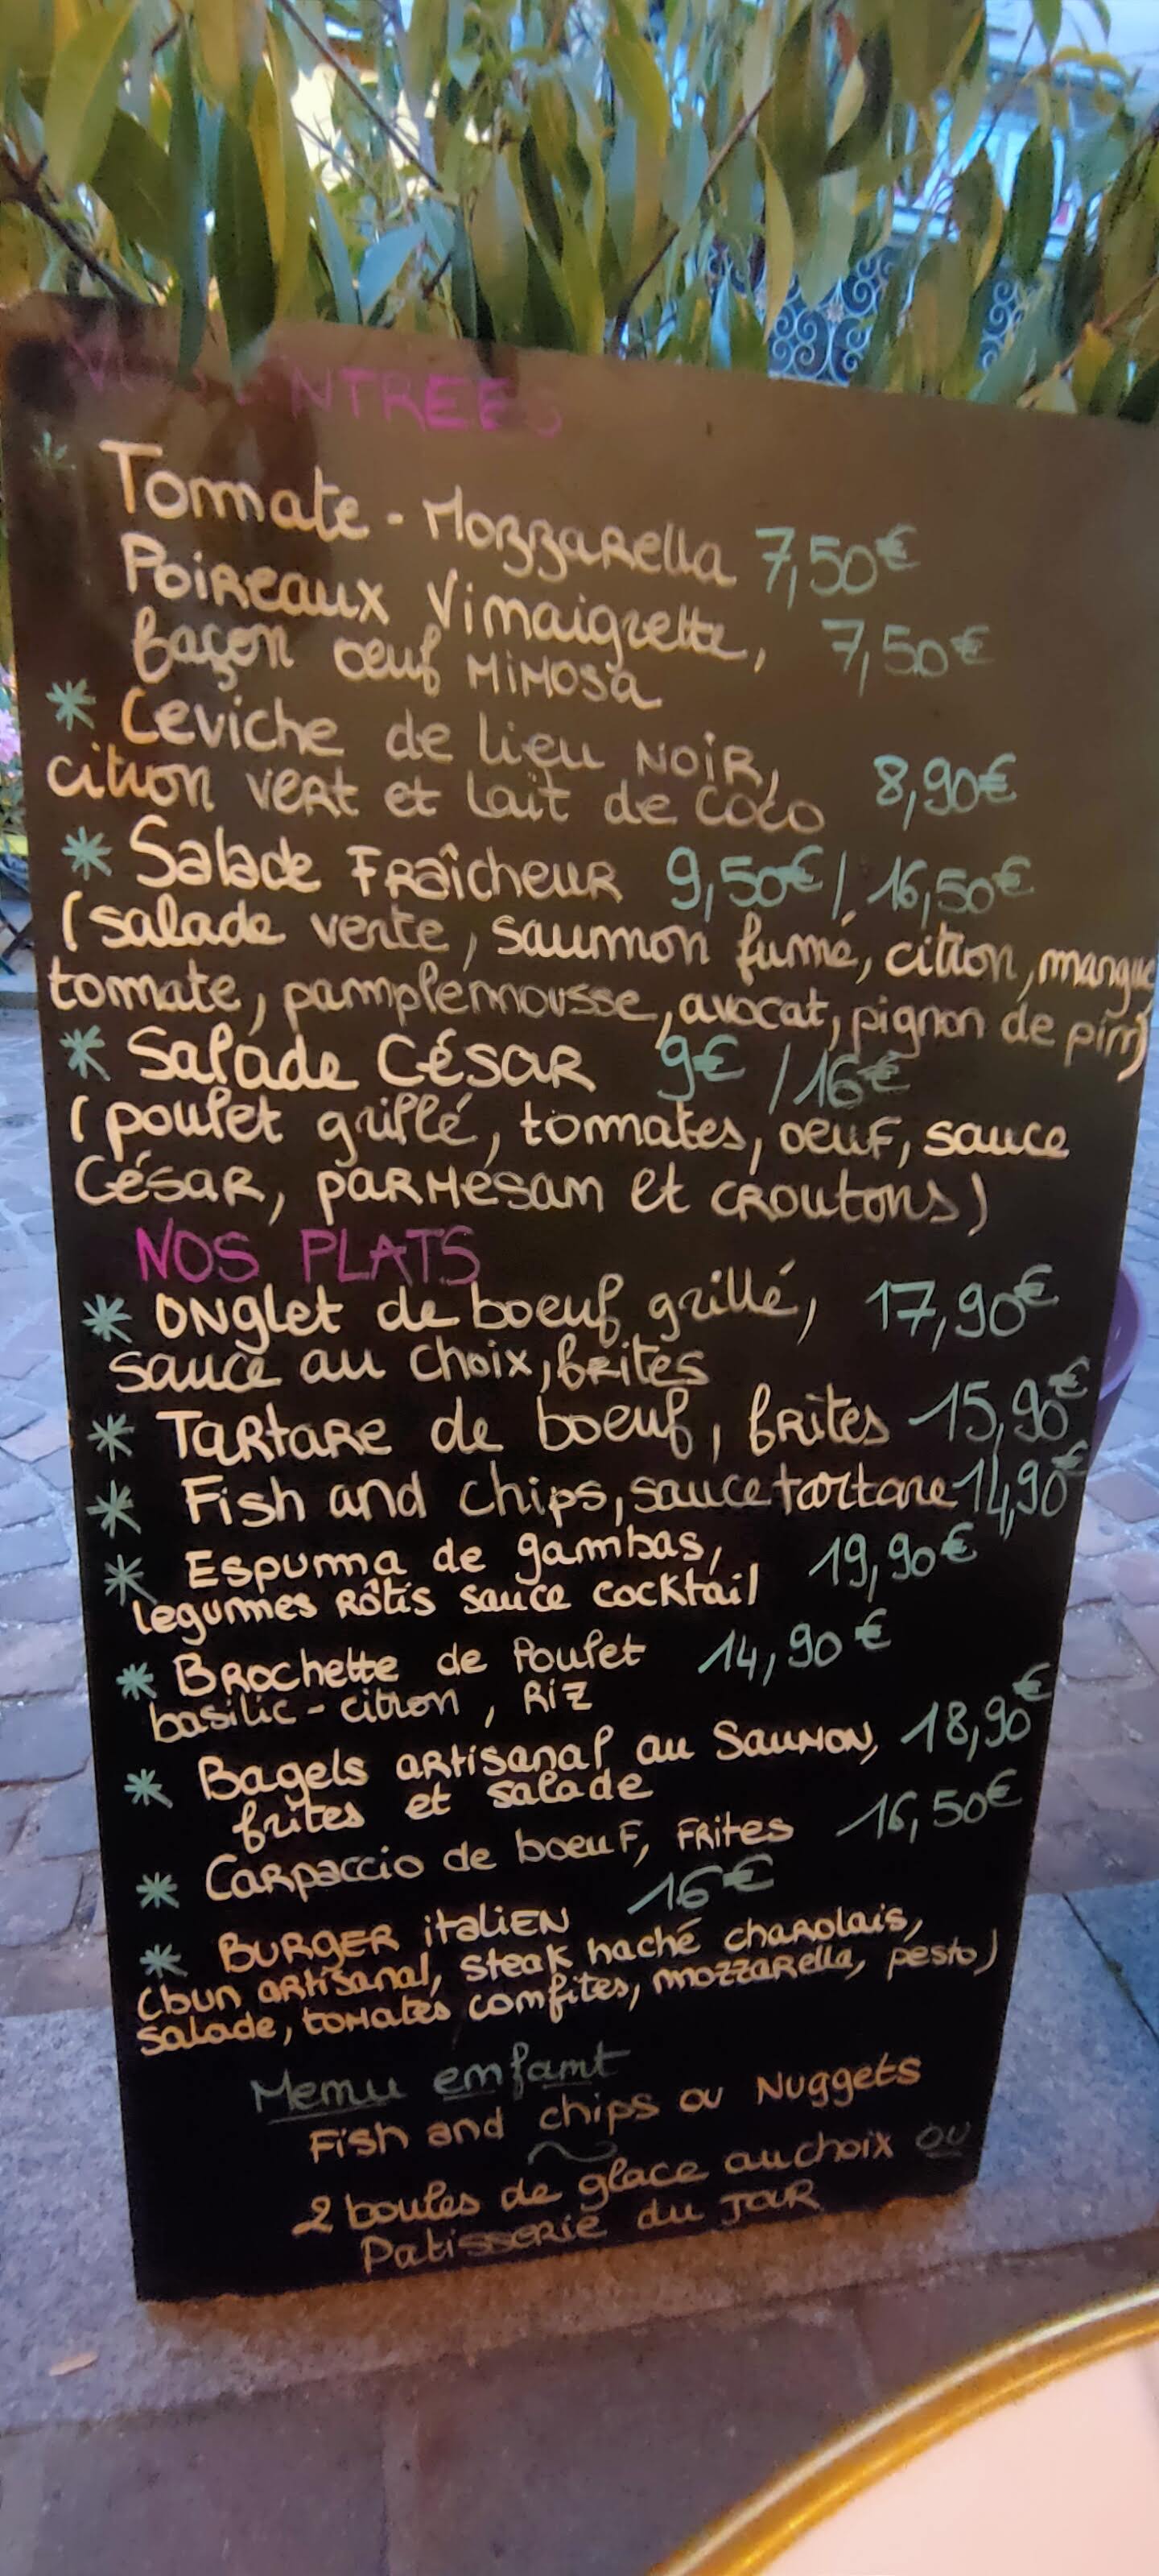 ENTREES
Tomate - Mozzarella 7,50€
Poireaux Vinaigrette, 7,50€
façon oeuf MiMosa
* Ceviche de lieu NOiR,
citron vert et lait de coco 8,90€
* Salade FRaîcheur 9,50€ / 16,50€
(salade verte, saumon fumé, citron, mangue
tomate, pamplemousse, avocat, pignon de pin)
* Salade CésaR 9€ / 16€
(poulet grillé, tomates, oeuf, sauce
César, paRMésan et cRoutons)
NOS PLATS
* ONglet de boeuf grillé, 17,90€
sauce au choix, frites
* TaRtaRe de boeuf, fRites 15,90€
* Fish and chips, sauce tartare 14,90€
* Espuma de gambas, 19,90€
legumes Rôtis sauce cocktail
* BRochette de Poulet 14,90€
basilic - citron, Riz
* Bagels aRtisanal au SauMoN, 18,90€
frites et salade
* CaRpaccio de boeuF, FRites 16,50€
* BURGER italiEN 16€
(bun aRtisanal, steak haché chaRolais,
Salade, toMates confites, mozzaRella, pesto)
Menu enfant
Fish and chips ou Nuggets
~
2 boules de glace au choix ou
Patisserie du JouR